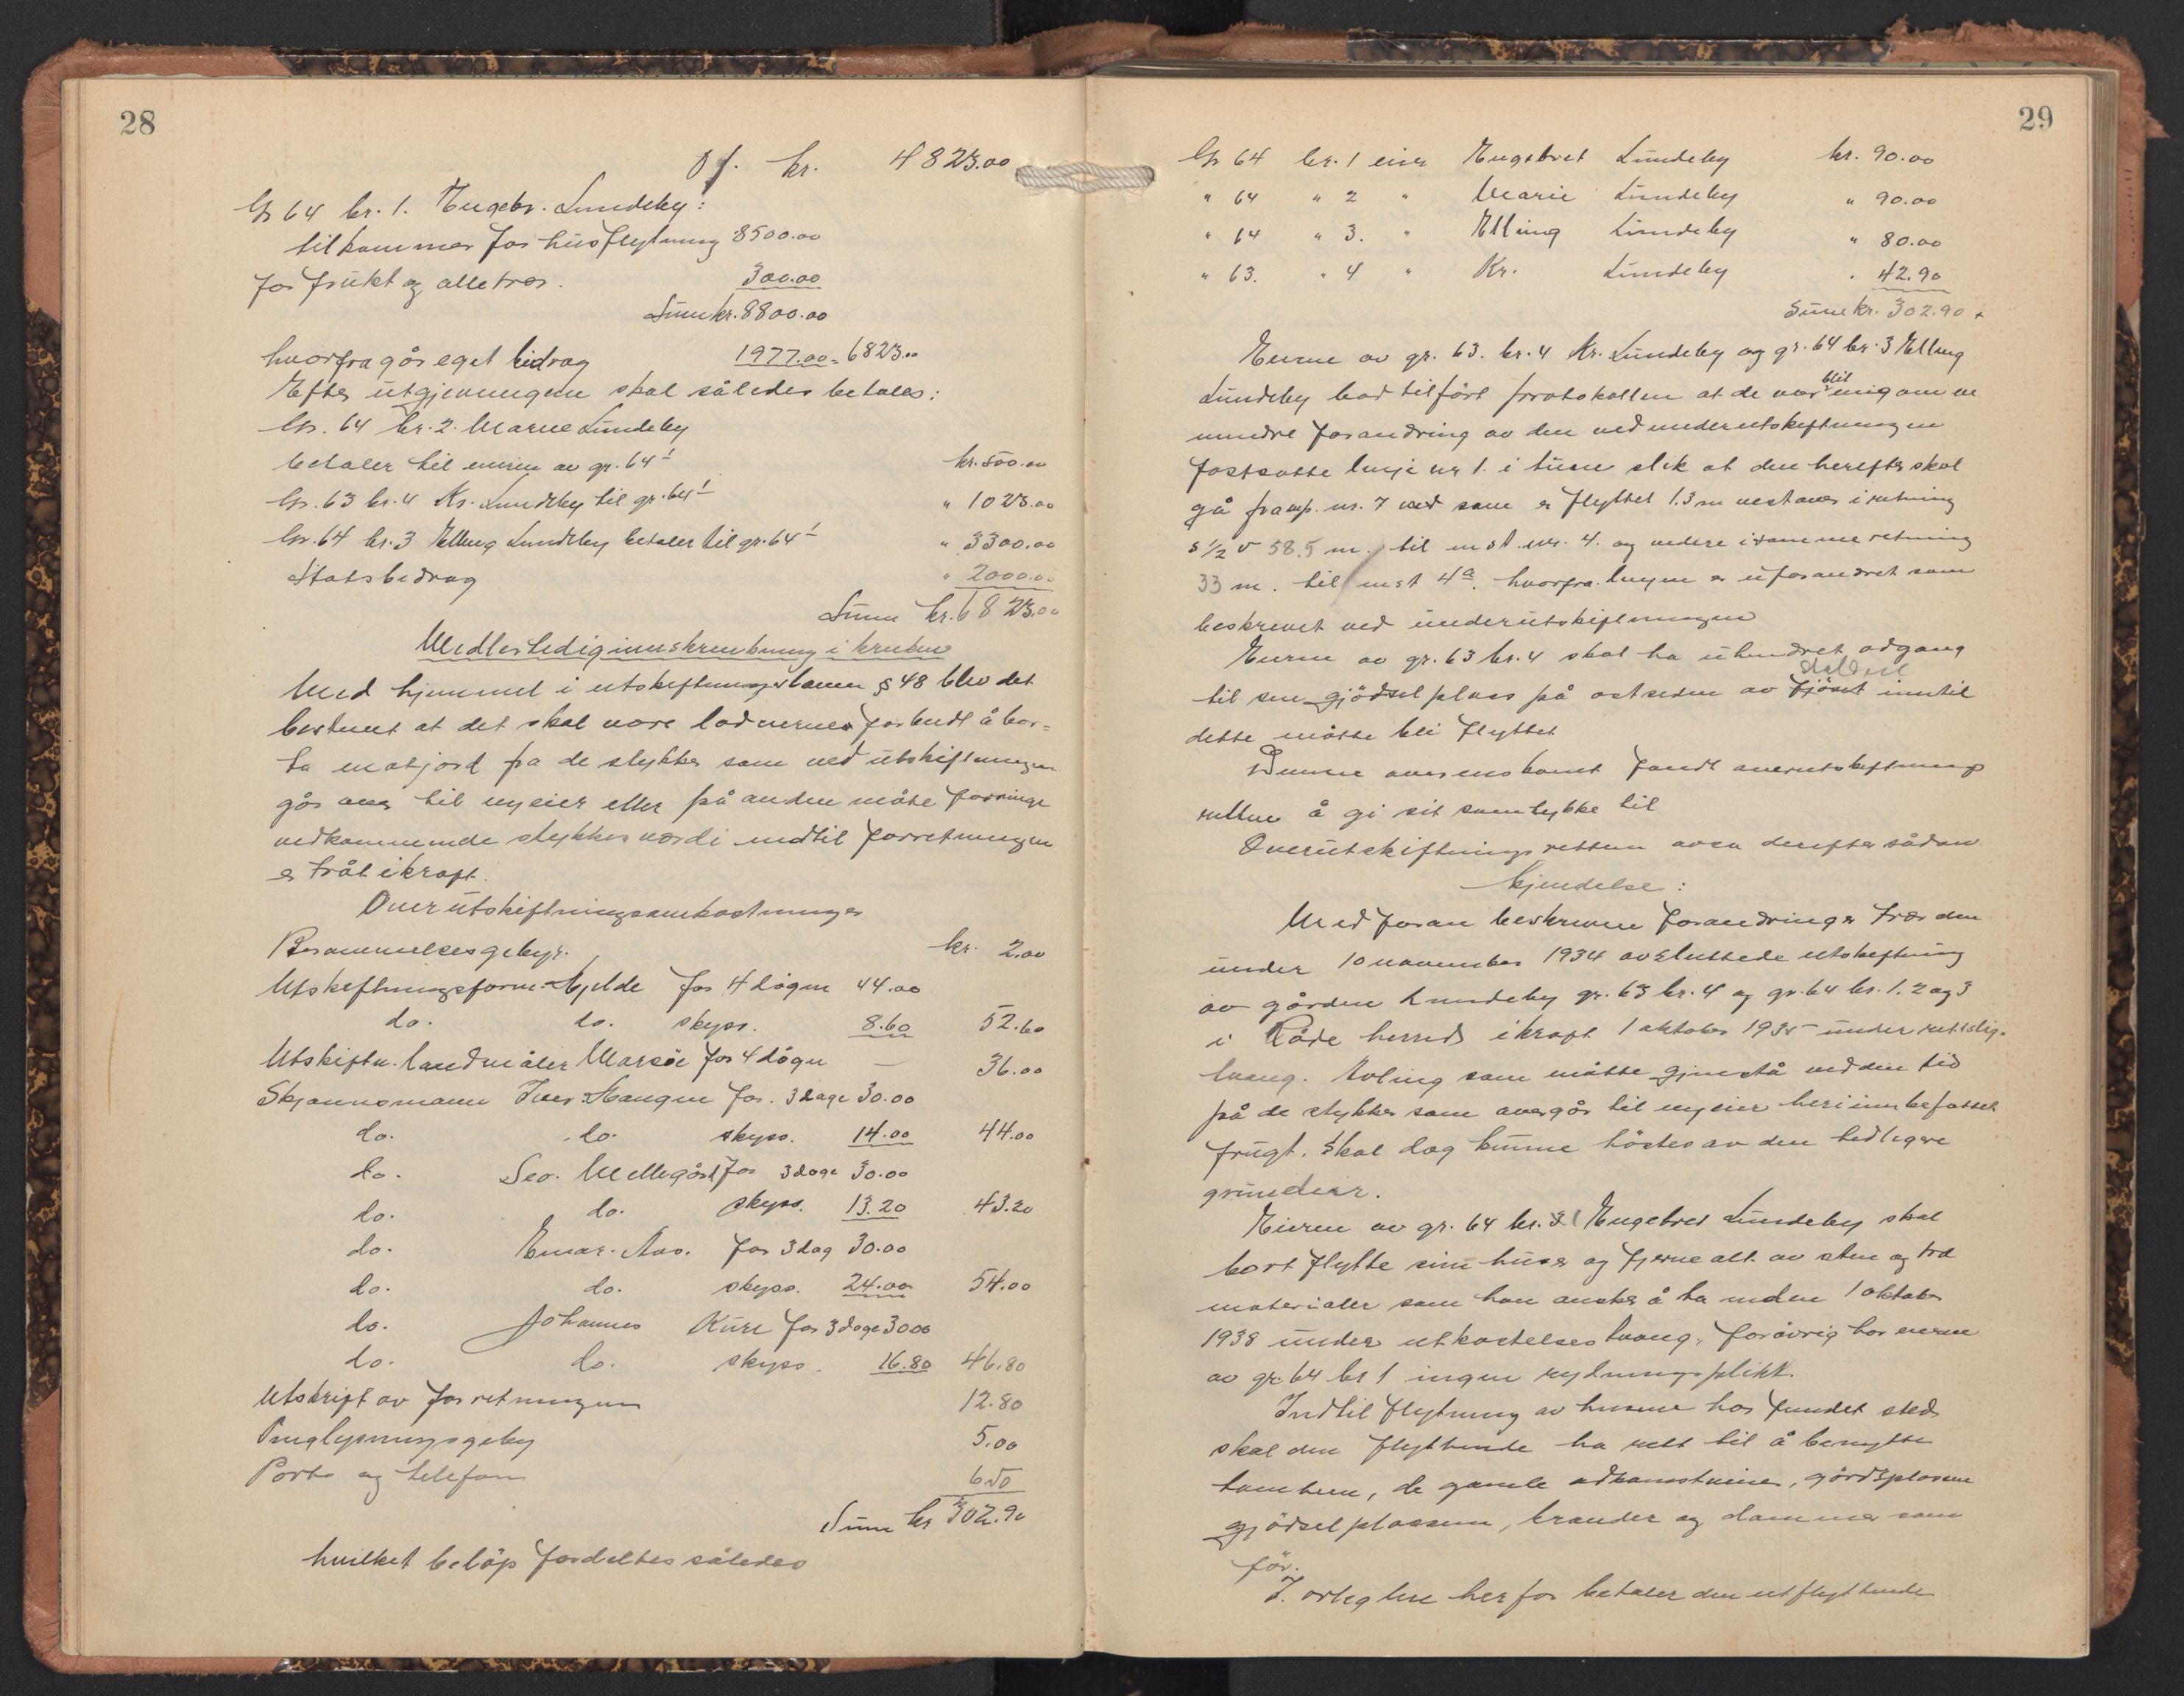 28
Of. kr. 4823.00
Gr 64 br. 1. Engebr. Lundeby:
tilkommer for husflytning 8500.00
for frukt og alletrær. 300.00
Sum kr. 8800.00
hvorfra går eget bidrag 1977.00 = 6823.00
Efter utgjevningen skal således betales:
Gr. 64 br. 2. Marie Lundeby
betaler til eieren av gr. 64¹ kr. 500.00
Gr. 63 br. 4 Kr. Lundeby til gr. 64¹ " 1023.00
Gr. 64 br. 3 Elling Lundeby betaler til gr. 64¹ " 3300.00
Statsbidrag " 2000.00
Sum kr. 6823.00
Midlertidig innskrenkning i bruken
Med hjemmel i utskiftningsloven § 48 blev det
bestemt at det skal være lodeierne forbudt å bor-
ta matjord fra de stykker som ved utskiftningen
går over til ny eier eller på anden måte forringe
vedkommende stykkes værdi indtil forretningen
er trått i kraft.
Overutskiftningsomkostninger
Berammelsesgebyr. kr. 2.00
Utskiftningsform. Gjelde for 4 døgn 44.00
do. do. skyss. 8.60 52.60
Utskiftn. landmåler Marsøe for 4 døgn — 36.00
Skjønnsmann Iver Haugen for. 3 dage 30.00
do. do. skyss. 14.00 44.00
do. Sev. Mellegård for 3 dage 30.00
do. do. skyss. 13.20 43.20
do. Einar Aas. for 3 dag 30.00
do. do. skyss. 24.00 54.00
do. Johannes Kure for 3 dage 30.00
do. do. skyss. 16.80 46.80
Utskrift av forretningen 12.80
Tinglysningsgeby 5.00
Porto og telefon 6.50
Sum kr 302.90
hvilket beløp fordeltes således
29
Gr 64 br. 1 eier Engebret Lundeby kr. 90.00
" 64 " 2 " Marie Lundeby " 90.00
" 64 " 3. " Elling Lundeby " 80.00
" 63. " 4 " Kr. Lundeby " 42.90
Sum kr. 302.90
Eierne av gr. 63. br. 4 Kr. Lundeby og gr. 64 br. 3 Elling
Lundeby bad tilført protokollen at de var blit enig om en
mindre forandring av den ved underutskiftningen
fastsatte linje nr 1. i tunet slik at den herefter skal
gå fra mp. nr. 7 ved som er flyttet 1.3 m vestover i retning
s ½ v 58.5 m. til mst. nr. 4. og videre i samme retning
33 m. til mst 4ª. hvorfra linjen er uforandret som
beskrevet ved underutskiftningen
Eieren av gr. 63 br. 4 skal ha uhindret adgang
til sin gjødselplass på østsiden av fjøset inntil
dette måtte bli flyttet
Denne overenskomst fandt overutskiftnings
retten å gi sit samtykke til
Overutskiftningsretten avsa derefter sådan
Kjendelse:
Med foran beskrevne forandringer trær den
under 10 november 1934 avsluttede utskiftning
av gården Lundeby gr. 63 br. 4 og gr. 64 br. 1. 2 og 3
i Råde herred i kraft 1 oktober 1935 under rettslig-
tvang. Avling som måtte gjenstå ved den tid
på de stykker som overgår til ny eier heri innbefattet
frugt. skal dog kunne høstes av den tidligere
grundeier.
Eieren av gr. 64 br. 1 Engebret Lundeby skal
bort flytte sine huser og fjerne alt av sten og træ
materialer som han ønsker å ta inden 1 oktober
1938 under utkastelses tvang, forøvrig har eieren
av gr. 64 br 1 ingen rydningsplikt.
Indtil flytning av husene har fundet sted
skal den flyttende ha rett til å benytte
tomtene, de gamle adkomstveier, gårdsplassen
gjødselplassene, brønder og dammer som
før.
I vederlag herfor betaler den utflyttende